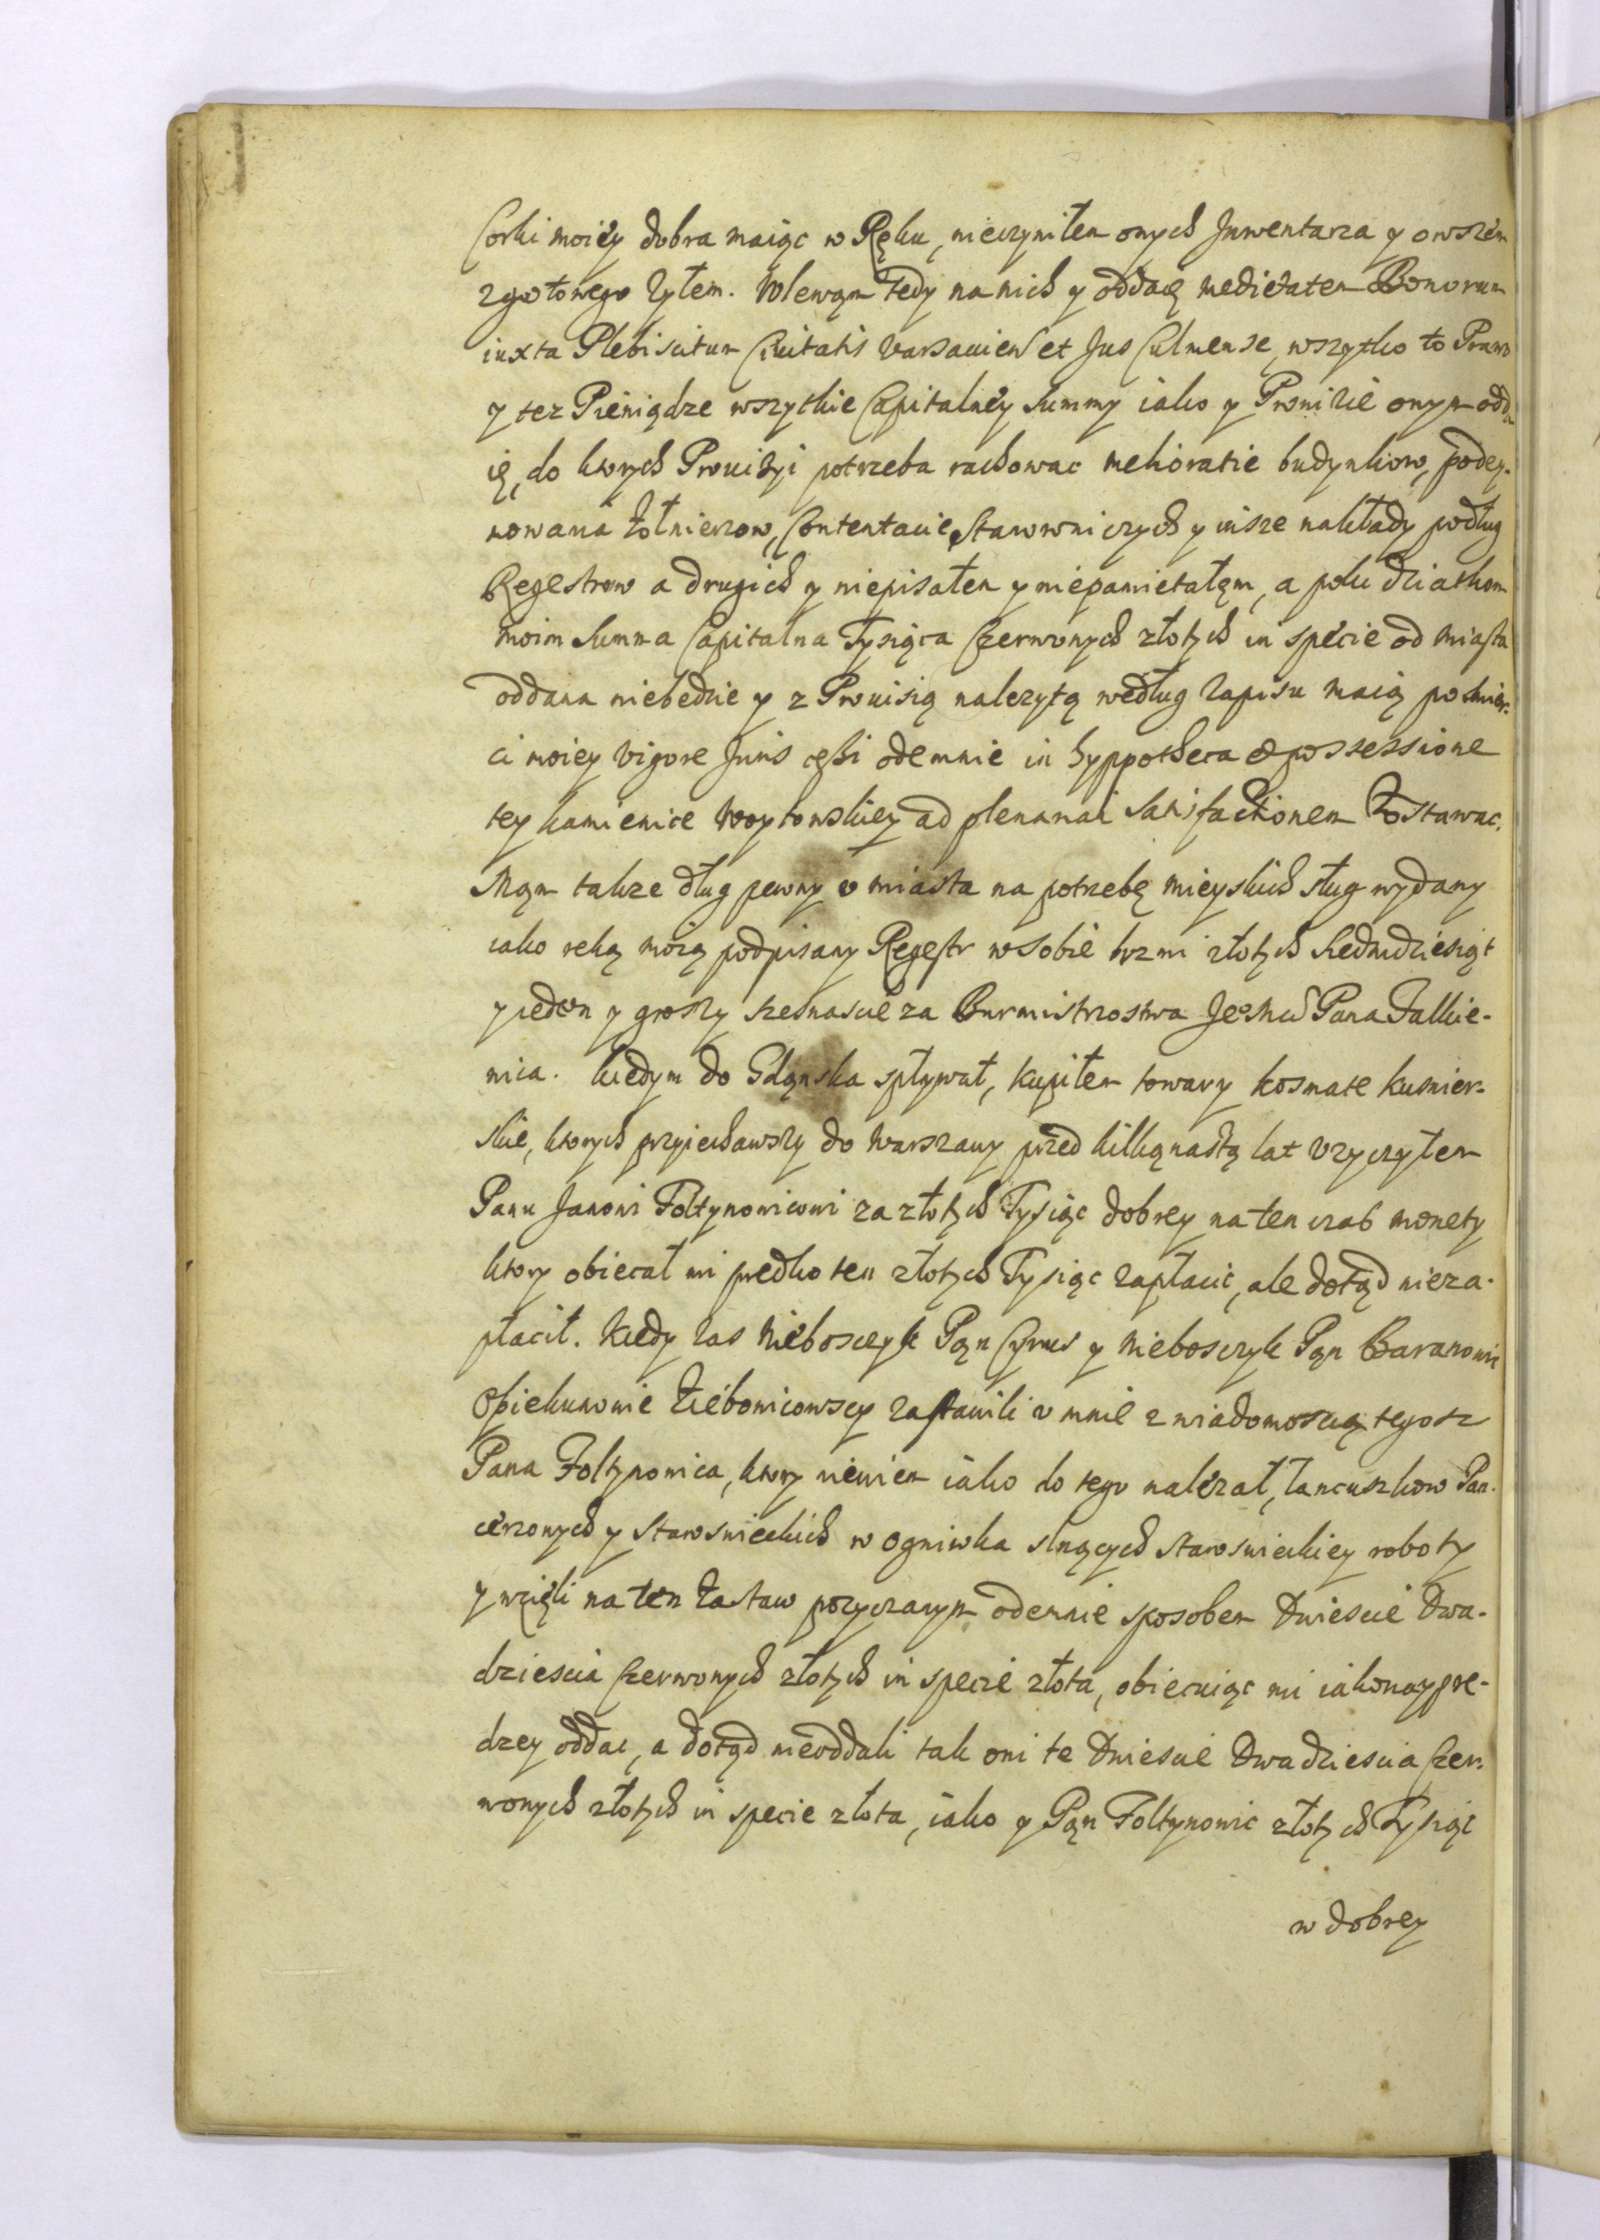 Corki moiey dobra maiąc w Ręku, nieczyniłem onych Inwentarza y owszem
zgotowego żyłem. Wlewąm tedy na nich y oddaię medietatem Bonorum
iuxta Plebiscitum Ciuitatis Varsauien et Jus Culmense, wszytko to Prawo
y tez Pieniądze wszytkie Capitalney Summy iako y Prouizie onym odda
ię, do ktorych Prouizyi potrzeba rachowac melioratie budynkow, podey-
mowania żołnierzow, Contentacie Stanowniczych y insze nakłady podług
Regestrow a drugich y niepisałem y niepamietałęm, a poki dziatkom
moim Summa Capitalna Tysiąca Czerwonych złotych in specie od miasta
oddana niebedzie y z Prouisią nalezytą według Zapisu maią po smier-
ci moiey vigore Juris cessi odemnie in hyppotheca et possessione
tey kamienice Woytowskiey ad plenariam satisfactionem zostawac.
Mąm takze dług pewny v miasta na potrzebę mieyskich sług wydany
iako ręką moią podpisany Regestr w sobie brzmi złotych siedmdziesiąt
y ieden y groszy szesnascie za Burmistrzostwa Jego Pana Falkie-
nica. kiedym do Gdąnska spływał, kupiłem towary kosmate kusnier-
skie, ktorych przyiechawszy do Warszawy przed kilkąnastą lat Vzyczyłem
Panu Janowi Foltynowicowi za złotych Tysiąc dobrey na ten czas monety
ktory obiecał mi predko ten złotych Tysiąc zapłacic, ale dotąd nieza-
płacił. kiedy zas Nieboszczyk Pąn Cyrus y Nieboszczyk Pąn Baranowic
Opiekunowie Łiebonicowscy zastawili v mnie z wiadomoscią tegosz
Pana Foltynowica, ktory niewiem iako do tego nalezał, łancuszkow Pan-
cerzonych y staroswieckich w ogniwka slnących staroswieckiey roboty
y wzięli na ten zastaw pozyczanym odemnie sposobem Dwiescie Dwa-
dziescia Czerwonych złotych in specie złota, obiecuiąc mi iakonaypre-
dzey oddac, a dotąd nieoddali tak oni te Dwiescie Dwadziescia Czer-
wonych złotych in specie złota, iako y Pąn Foltynowic złotych Tysiąc
w dobrey